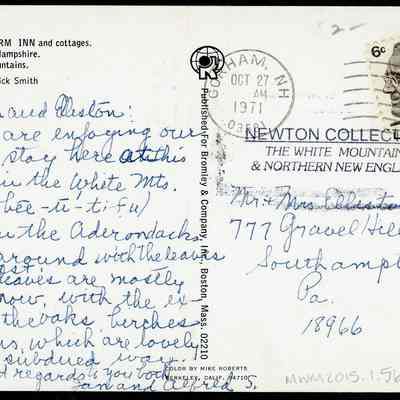 RM INN and cottages.
Hampshire.
ntains.
ick Smith
and Elliston:
are enjoying our
stay here at this
in the White Mts.
bee-ti-ti-ful)
in the Adirondacks
around with the leaves
leaves are mostly
now, with the ex-
the oaks, birches
s, which are lovely
subdued way.
regards to you both
Jan and Alfred S.
Published For Bromley & Company, Inc., Boston, Mass. 02210
COLOR BY MIKE ROBERTS
BERKELEY, CALIF. 94710
2-
6c
GORHAM, NH
OCT 27
AM
1971
03581
NEWTON COLLEC
THE WHITE MOUNTAIN
& NORTHERN NEW ENGL
Mr. & Mrs.
777 Gravel Hill
Southamp
Pa.
18966
MWM2015.1.56